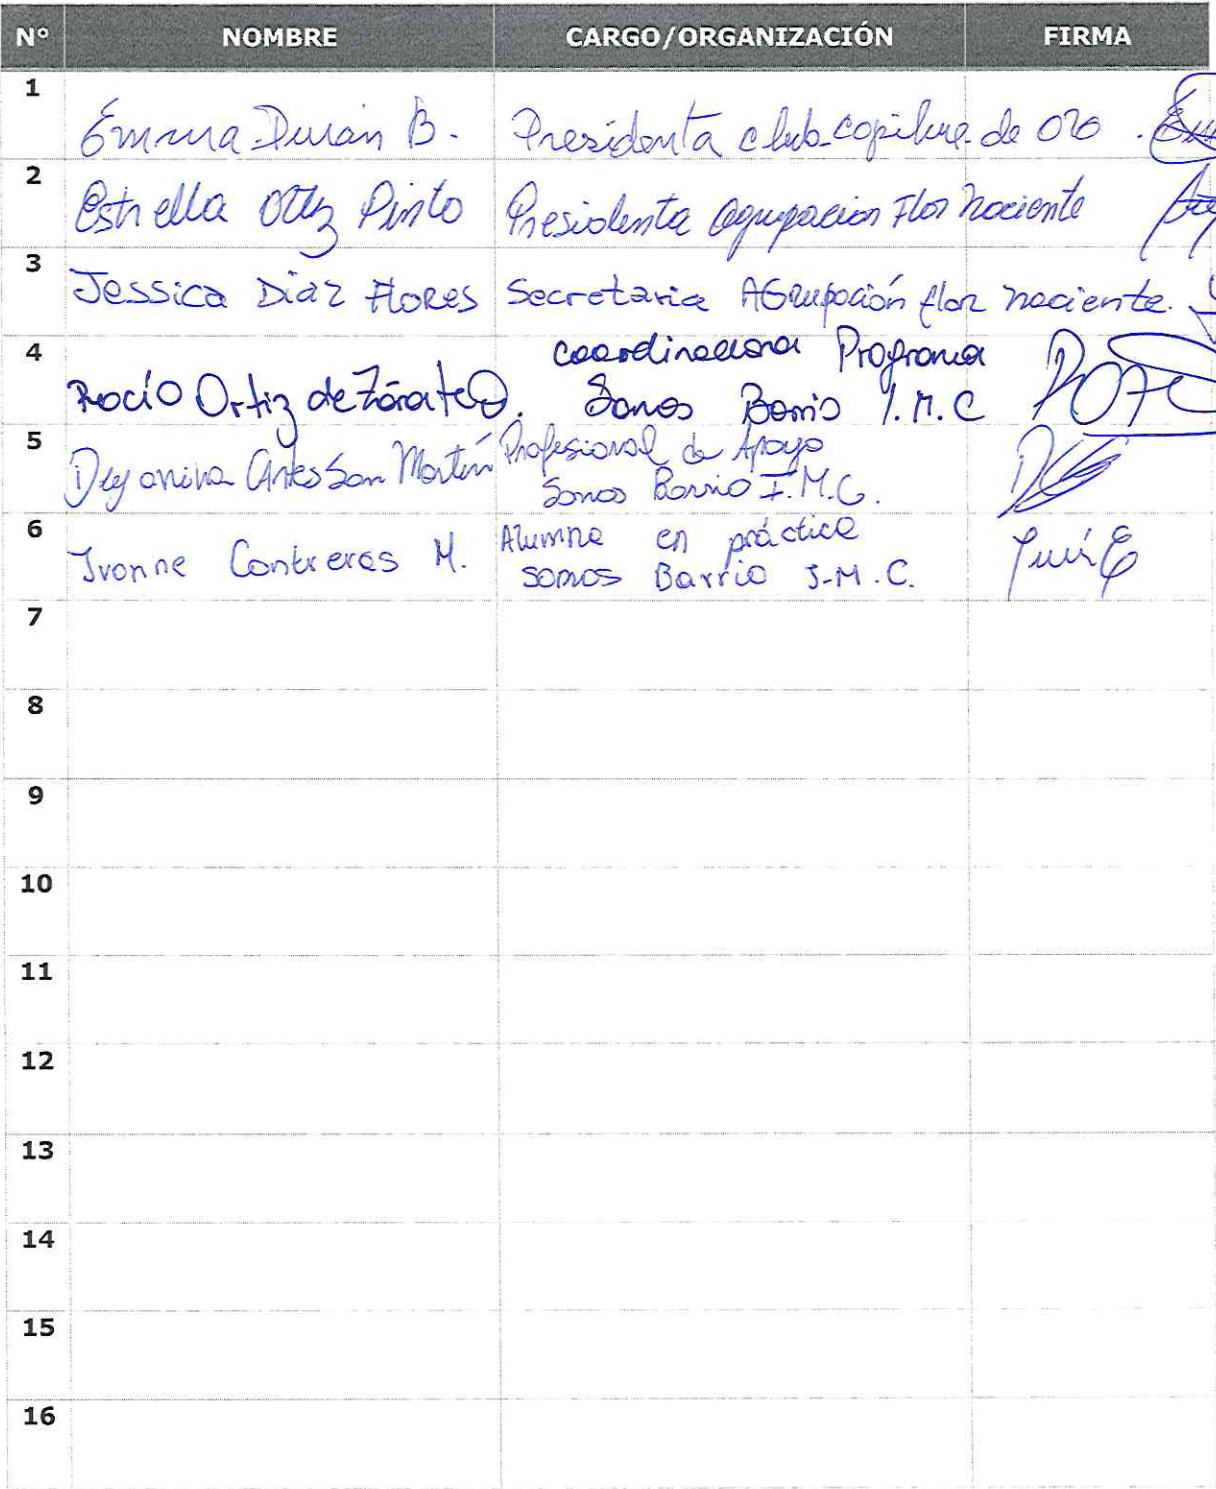 N° NOMBRE CARGO/ORGANIZACIÓN FIRMA
1 Emma Duran B. Presidenta club copihue de oro.
2 Estrella Ortiz Pinto Presidenta agrupacion Flor naciente
3 Jessica Diaz Flores Secretaria AGrupación flor naciente.
4 Rocío Ortiz de Zárate O. Coordinadora Programa
Somos Barrio I.M.C
5 Deyanira San Martín Profesional de Apoyo
Somos Barrio I.M.C.
6 Ivonne Contreras M. Alumna en práctica
Somos Barrio I.M.C.
7
8
9
10
11
12
13
14
15
16